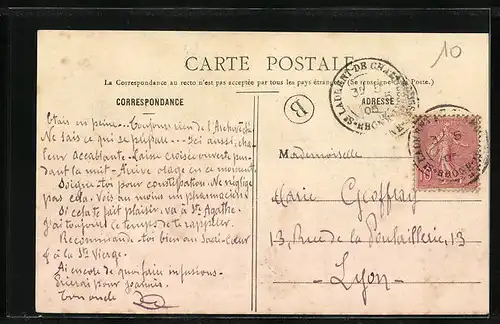 10
CARTE POSTALE
La Correspondance au recto n'est pas acceptée par tous les pays étrangers (Se renseigner à la Poste.)
CORRESPONDANCE
ADRESSE
B
ST LAURENT-DE-CHAMOUSSET
RHONE
05
Etais en peine... Toujours rien de l'Archevêché
Ne sais ce qui se passe... Ici aussi, cha-
leur accablante. Laisse croisée ouverte pen-
dant la nuit - Arrive orage en ce moment
Soigne-toi pour constipation. Ne néglige
pas cela. Vois au moins un pharmacien.
Si cela te fait plaisir, va à Ste Agathe.
J'ai toujours le temps de te rappeler.
Recommande-toi bien au Sacré-Cœur
& à la Ste Vierge.
Ai encore de quoi faire infusions.
Prierai pour Joannès.
Ton oncle
Mademoiselle
Marie Geoffray
13, Rue de la Poulaillerie, 13
Lyon